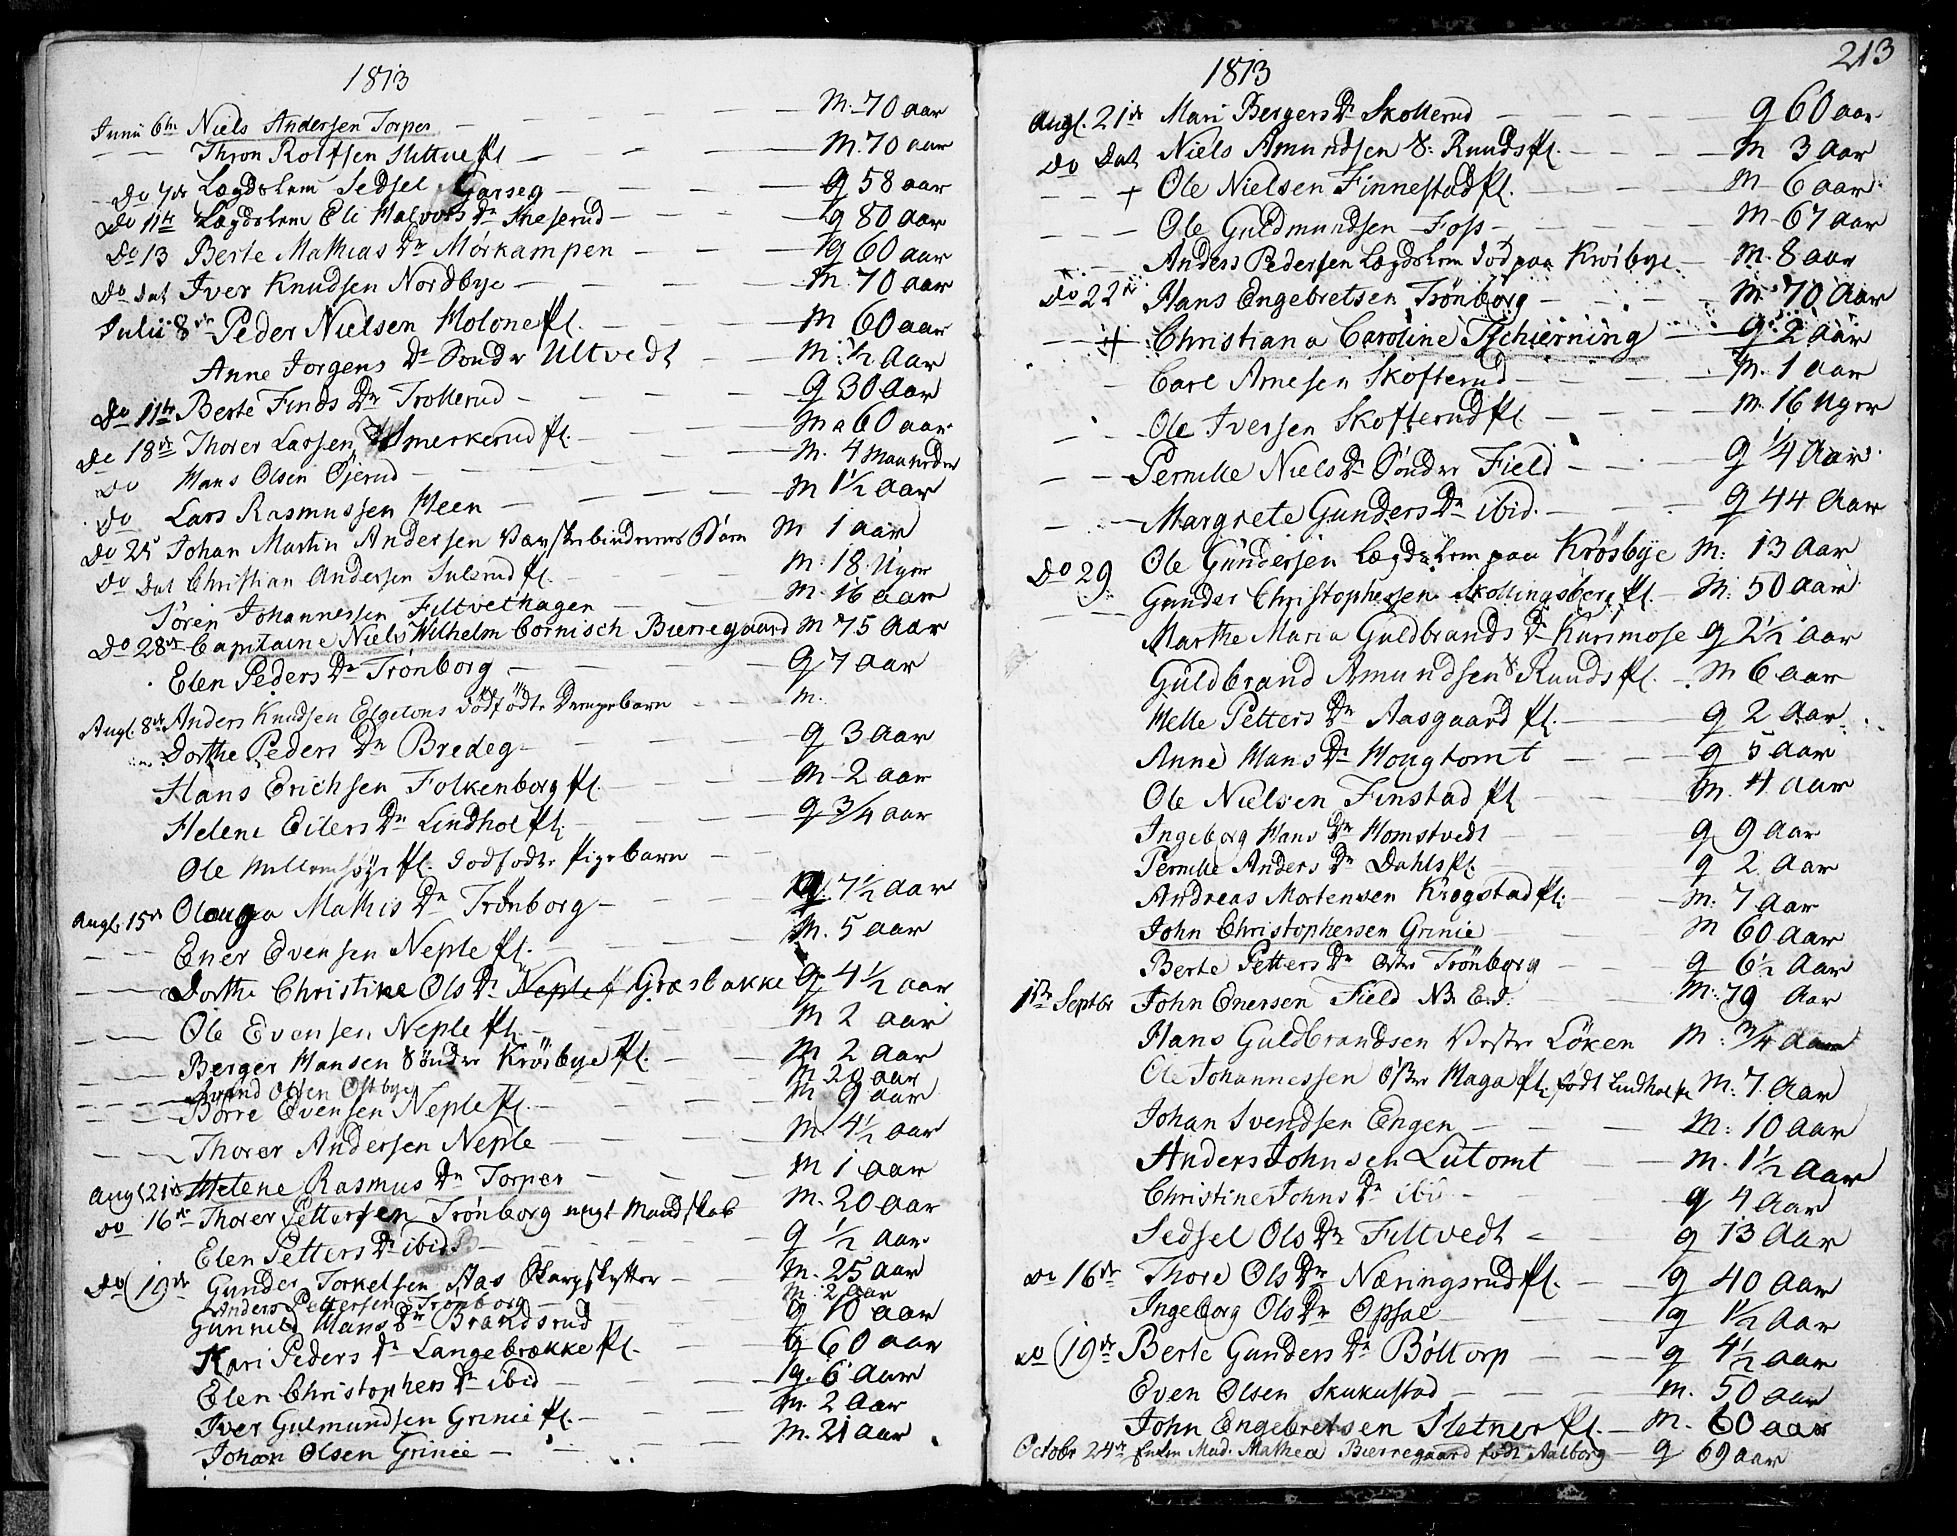 1813
Junii 6te Niels Andersen Torper — M. 70 aar
— Thron Rolfsen Slittue Pl — M. 70 aar
Do 7de Lægdslem Sedsel Garseg — q 58 aar
Do 11te Lægdslem Eli Halvors Dr — q 80 aar
Do 13 Berte Mathias Dr Mörkampen — q 60 aar
Do dat Iver Knudsen Nordbye — M. 70 aar
Julii 8de Peder Nielsen Holone Pl. — M 60 aar
Anne Jorgens Dr Sondr Ultvedt — M. ½ Aar
Do 11te Berte Finds Dr Trollerud — q 30 Aar
Do 18de Thorer Larsen Smerkerud Pl. — M a 60 aar
Do Hans Olsen Öjerud — M. 4 Maaneder
Do Lars Rasmussen Heen — M 1½ Aar
Do 25 Johan Martin Andersen Barn M 1 aar
Do Dat Christian Andersen Sulerud Pl. — M. 18 Uger
Sören Johannessen Filtvethagen — M. 16 aar
Do 28de Capitaine Niels Wilhelm Cornisch Bierregaard M 75 Aar
Elen Peders Dr Trönborg — q 7 aar
Augl. 8de Anders Knudsen Elgetons dödfödte Drengebarn — M.
Dorthe Peders Dr Bredeg — q 3 aar
Hans Erichsen Folkenborg Pl. — M 2 aar
Helene Eilers Dr Lindhol Pl. — q ¾ aar
Ole Pl. dödfödte Pigebarn —
Augl. 15de Olouga Mathis Dr Trönborg — q. 7½ aar
— Ener Evensen Neple Pl. — M. 5 aar
— Dorthe Christine Ols Dr Neple Græsbakke q 4½ aar
— Ole Evensen Neple Pl. — M 2 aar
— Berger Hansen Söndre Krösbye Pl. — M 2 Aar
— Svend Olsen Ostbye — M 20 aar
— Börre Evensen Neple Pl. — M 9 aar
Thorer Andersen Neple — M. 4½ aar
Augl 21de Helene Rasmus Dr Torper — M 1 aar
Do 16de Thorer Pettersen Trönborg ungt Mandskab M. 20 aar
Elen Petters Dr ibid — q ½ aar
Do (19de Gunder Torkelsen Aas Skarpskytter — M. 25 aar
Anders Pettersen Trönborg — M. 2 aar
Gunnild Hans Dr Brandsrud — q 10 aar
Kari Peders Dr Langebrække Pl. — q 60 aar
Elen Christophers Dr ibid — q. 6 Aar
Iver Gulmundsen Grinie Pl. — M. 2 Aar
Johan Olsen Grinie — M. 21 aar
213
1813
Augl. 21de Mari Bergers Dr Skollerud — q 60 aar
Do Dat Niels Amundsen S. Ruuds Pl. — M 3 Aar
— + Ole Nielsen Finnestad Pl. — M 6 aar
— Ole Guldmundsen Foss — M 67 aar
Anders Pedersen Lægdslem död paa Kröbye — M. 8 aar
Do 22de Hans Engebretsen Trönborg — M. 70 Aar
— + Christiana Caroline Tschierning — q 2 aar
— Carl Arnesen Skofterud — M. 1 aar
— Ole Iversen Skofterud Pl — M. 16 Uger
— Pernille Niels Dr Söndre Field — q ¼ Aar
— Margrete Gunders Dr ibid. — q 44 Aar
Do 29 Ole Gundersen Lægdslem paa Krösbye M: 13 Aar
— Gunder Christophersen Skollingsberg Pl. M: 50 aar
Marthe Maria Guldbrands Dr Kurimose q 2½ aar
Guldbrand Amundsen S Ruuds Pl. — M 6 aar
Helle Petters Dr Aasgaard Pl. — q 2 Aar
Anne Hans Dr Hougtomt — q 5 Aar
Ole Nielsen Finstad Pl — M. 4 aar
Ingeborg Hans Dr Homstvedt — q 9 Aar
Pernille Anders Dr Dahls Pl. — q 2 Aar
Andreas Mortensen Krogstad Pl. — M: 7 Aar
John Christophersen Grinie — M 60 Aar
Berte Petters Dr Östre Trönborg — q 6½ Aar
1ste Septbr John Enersen Field NB. E. I. M: 79 Aar
Hans Guldbrandsen Vestre Löken M: ¾ Aar
Ole Johannessen Östre Haga Pl. födt Lindhol Pl M: 7 Aar
Johan Svendsen Engen — M: 10 Aar
Anders Johnsen Lutomt — M. 1½ Aar
Christine Johns Dr ibid — q 4 Aar
Sedsel Ols Dr Filtvedt — q 13 Aar
Do 16de Thore Ols Dr Næringsrud Pl. — q 40 Aar
Ingeborg Ols Dr Opsal — q 1½ Aar
Do (19de Berte Gunders Dr Böltorp — q 4½ aar
Even Olsen Skukustad — M. 50 aar
John Engebretsen Sletner Pl. — M. 60 aar
Octobr 24de Enken Mad: Mathea Bierregaard födt Aalborg — q 69 aar